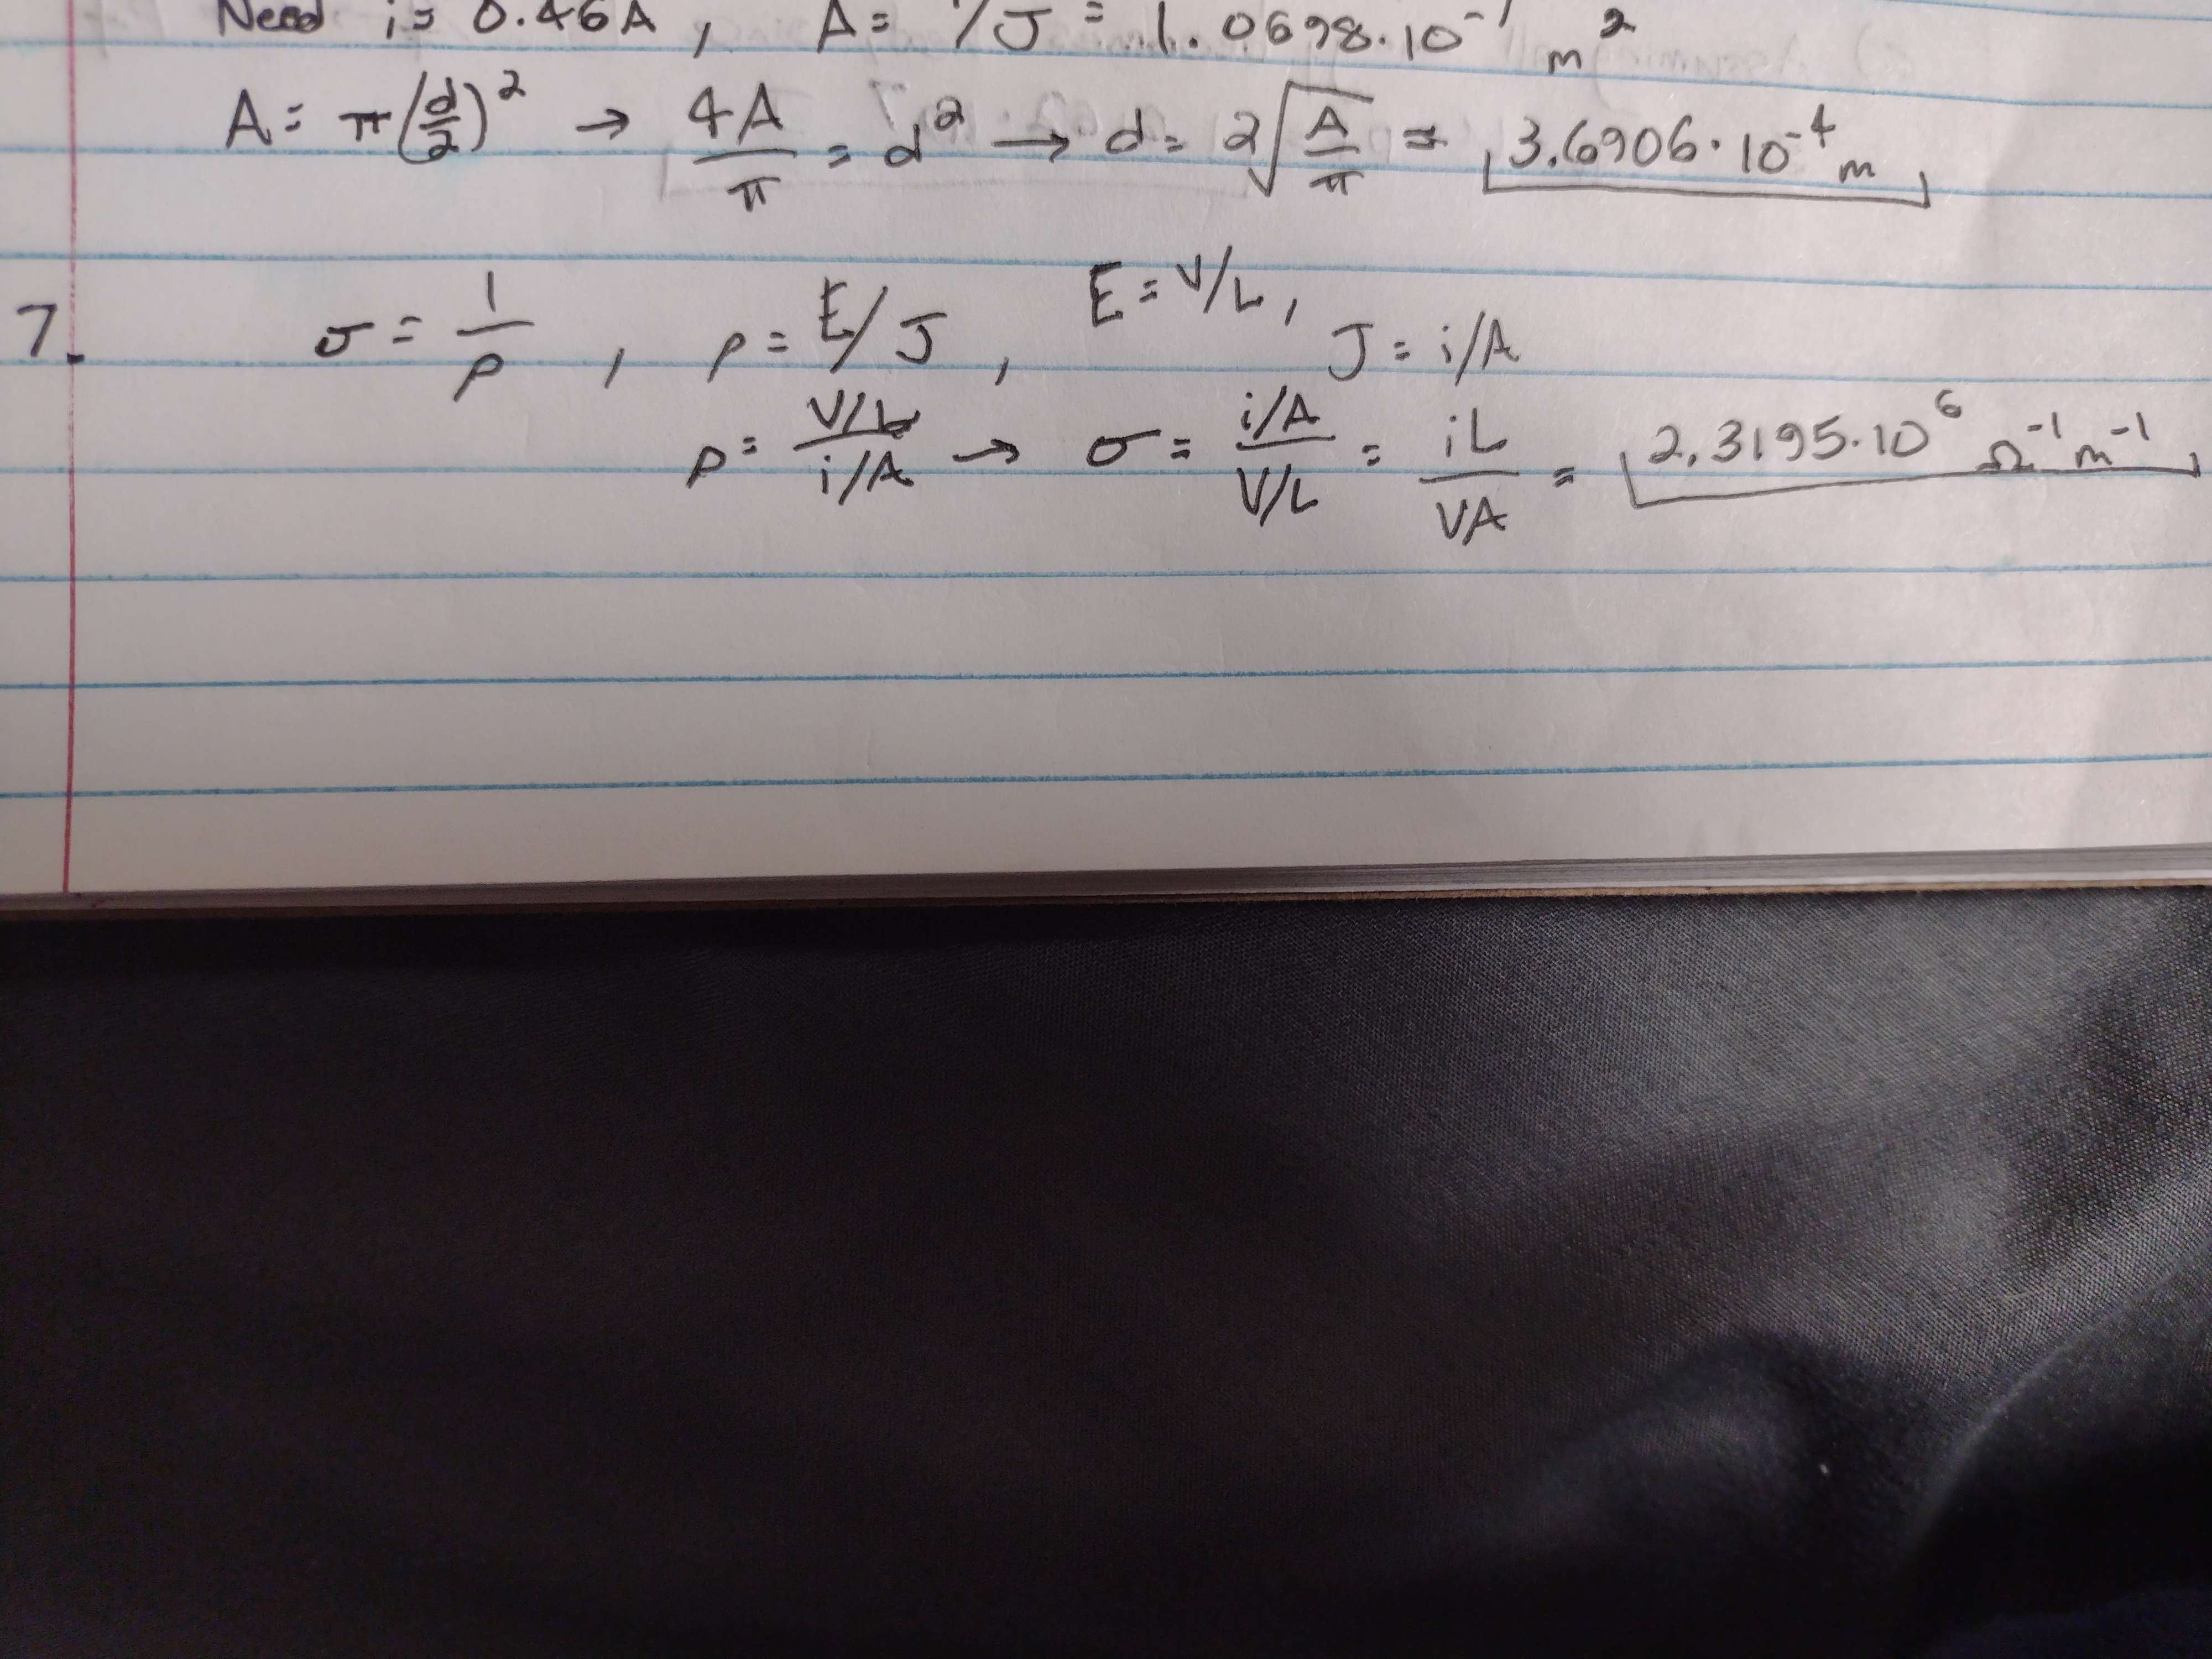 Need i= 0.46A, A= i/J = 1.0698·10^-7 m^2
A= π(d/2)^2 → 4A/π = d^2 → d= 2√(A/π) = 3.6906·10^-4 m
7. σ = 1/ρ, ρ= E/J, E=V/L, J= i/A
ρ= (V/L)/(i/A) → σ= (i/A)/(V/L) = iL/VA = 2.3195·10^6 Ω^-1 m^-1